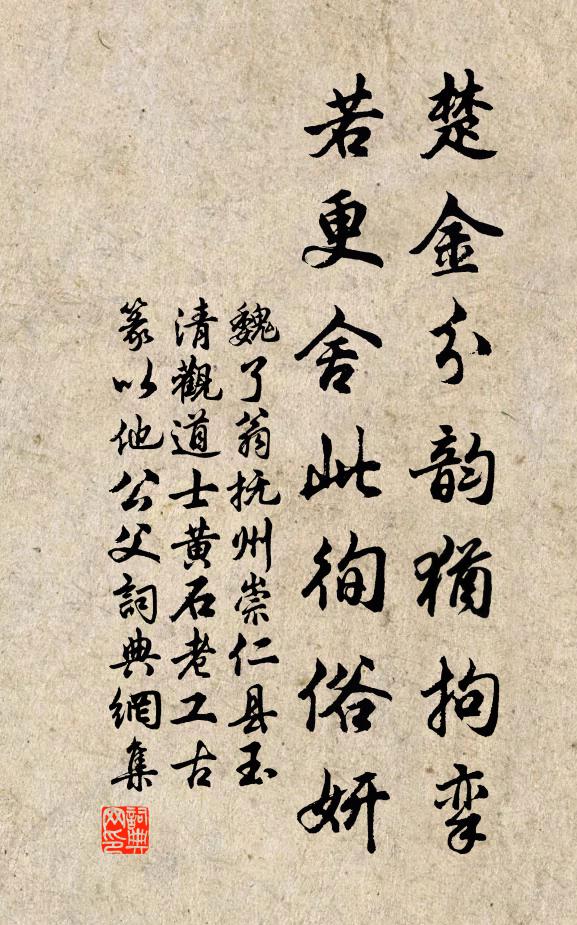 楚金分韵犹拘挛
若更舍此徇俗妍
魏了翁抚州崇仁县玉
清觀道士黄石老工古
篆以他公父詞典網集
詞典網印